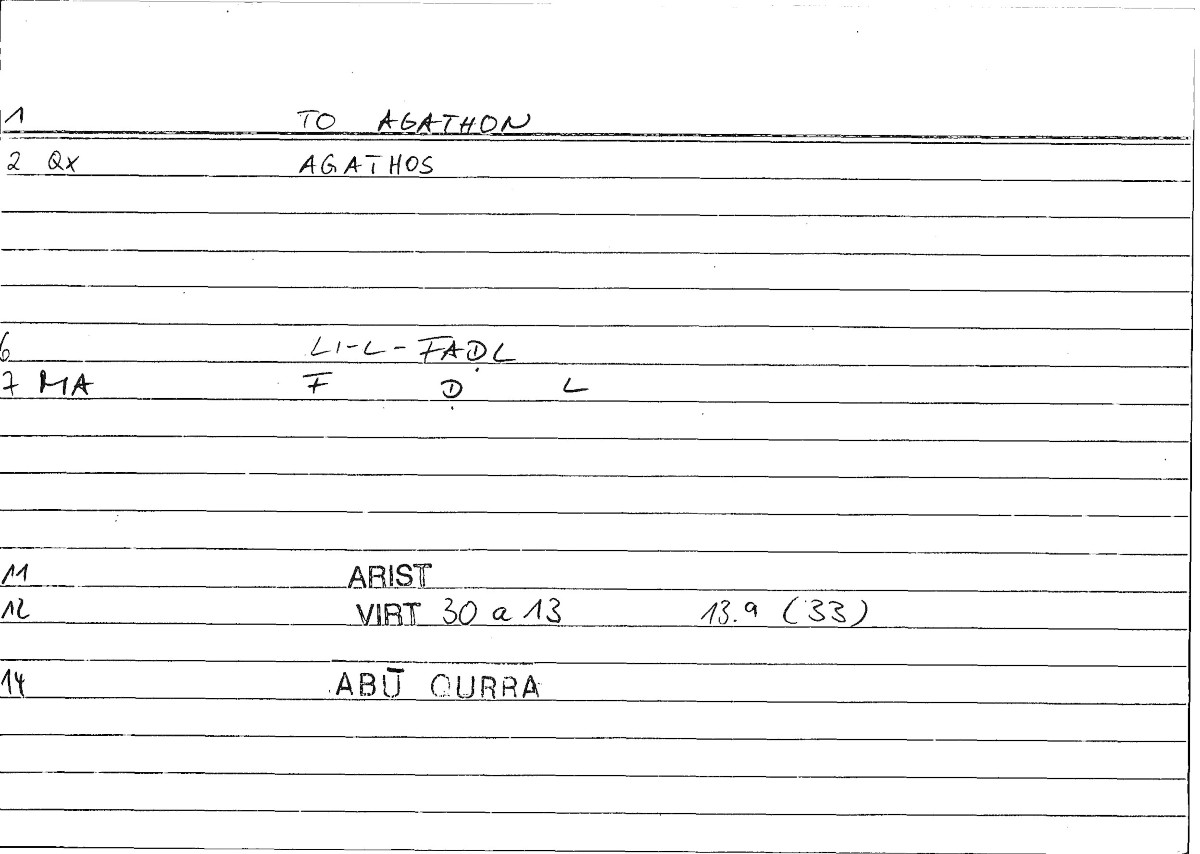 1 TO AGATHON
2 QX AGATHOS
6 LI-L-FAḌL
7 MA F Ḍ L
11 ARIST
12 VIRT 30 a 13 13.9 (33)
14 ABŪ QURRA